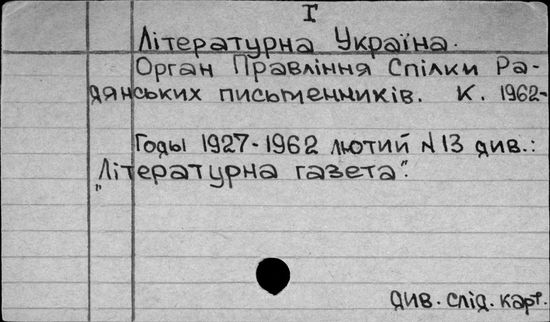 I
Літературна Україна.
Орган Правління Спілки Ра-
дянських письменників. К. 1962-
Годы 1927-1962 лютий N 13 див.:
"Літературна газета".
див. слід. карт.